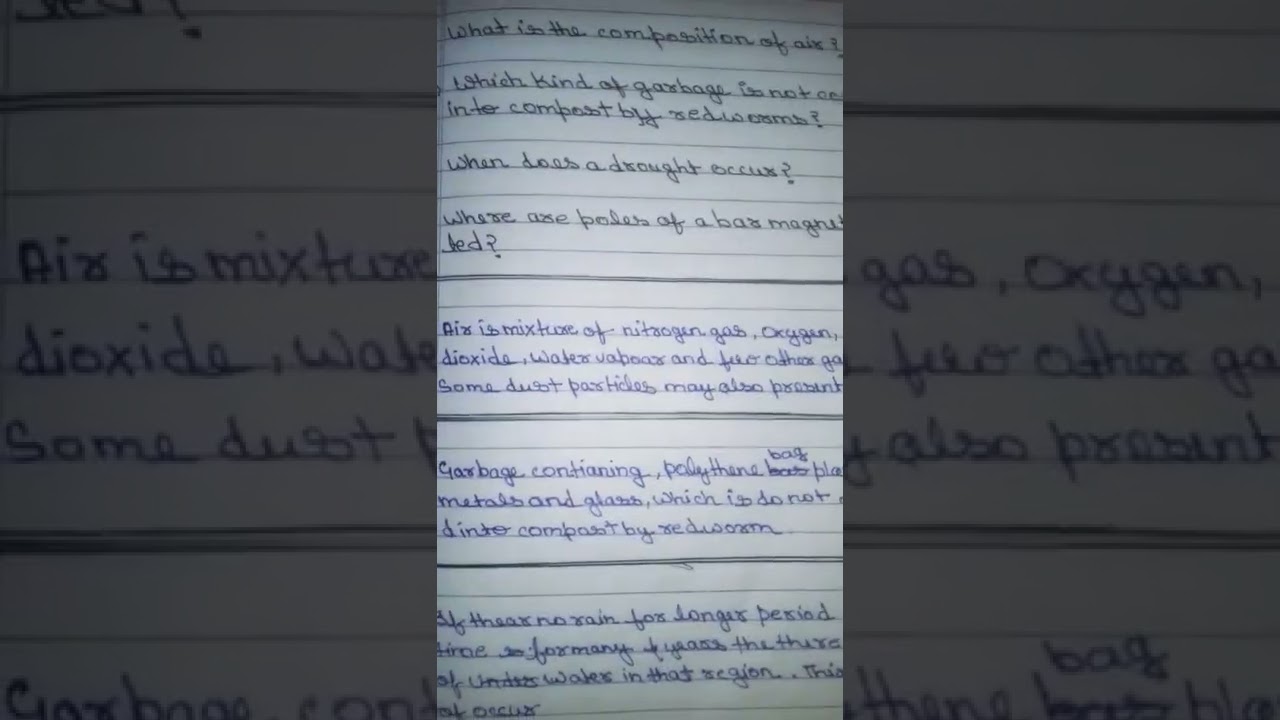 What is the composition of air?
Which kind of garbage is not
into compost by redworms?
When does a drought occur?
Where are poles of a bar magnet
ted?
Air is mixture of nitrogen gas, Oxygen,
dioxide, water vapour and few other ga
Some dust particles may also present
Garbage contianing, polythene bag pla
metals and glass, which is do not
d into compost by redworm
If thear no rain for longer period
time for many years the there
of under water in that region. This
of occur